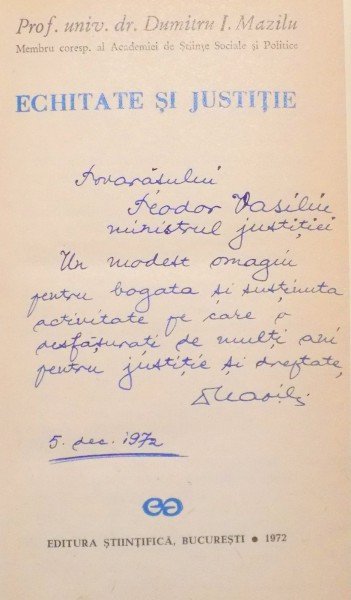 Prof. univ. dr. Dumitru I. Mazilu
Membru coresp. al Academiei de Științe Sociale și Politice
ECHITATE ȘI JUSTIȚIE
Tovarășului
Teodor Vasiliu
ministrul justiției
Un modest omagiu
pentru bogata și susținuta
activitate pe care o
desfășurați de mulți ani
pentru justiție și dreptate,
DMazilu
5. dec. 1972
EDITURA ȘTIINȚIFICĂ, BUCUREȘTI • 1972